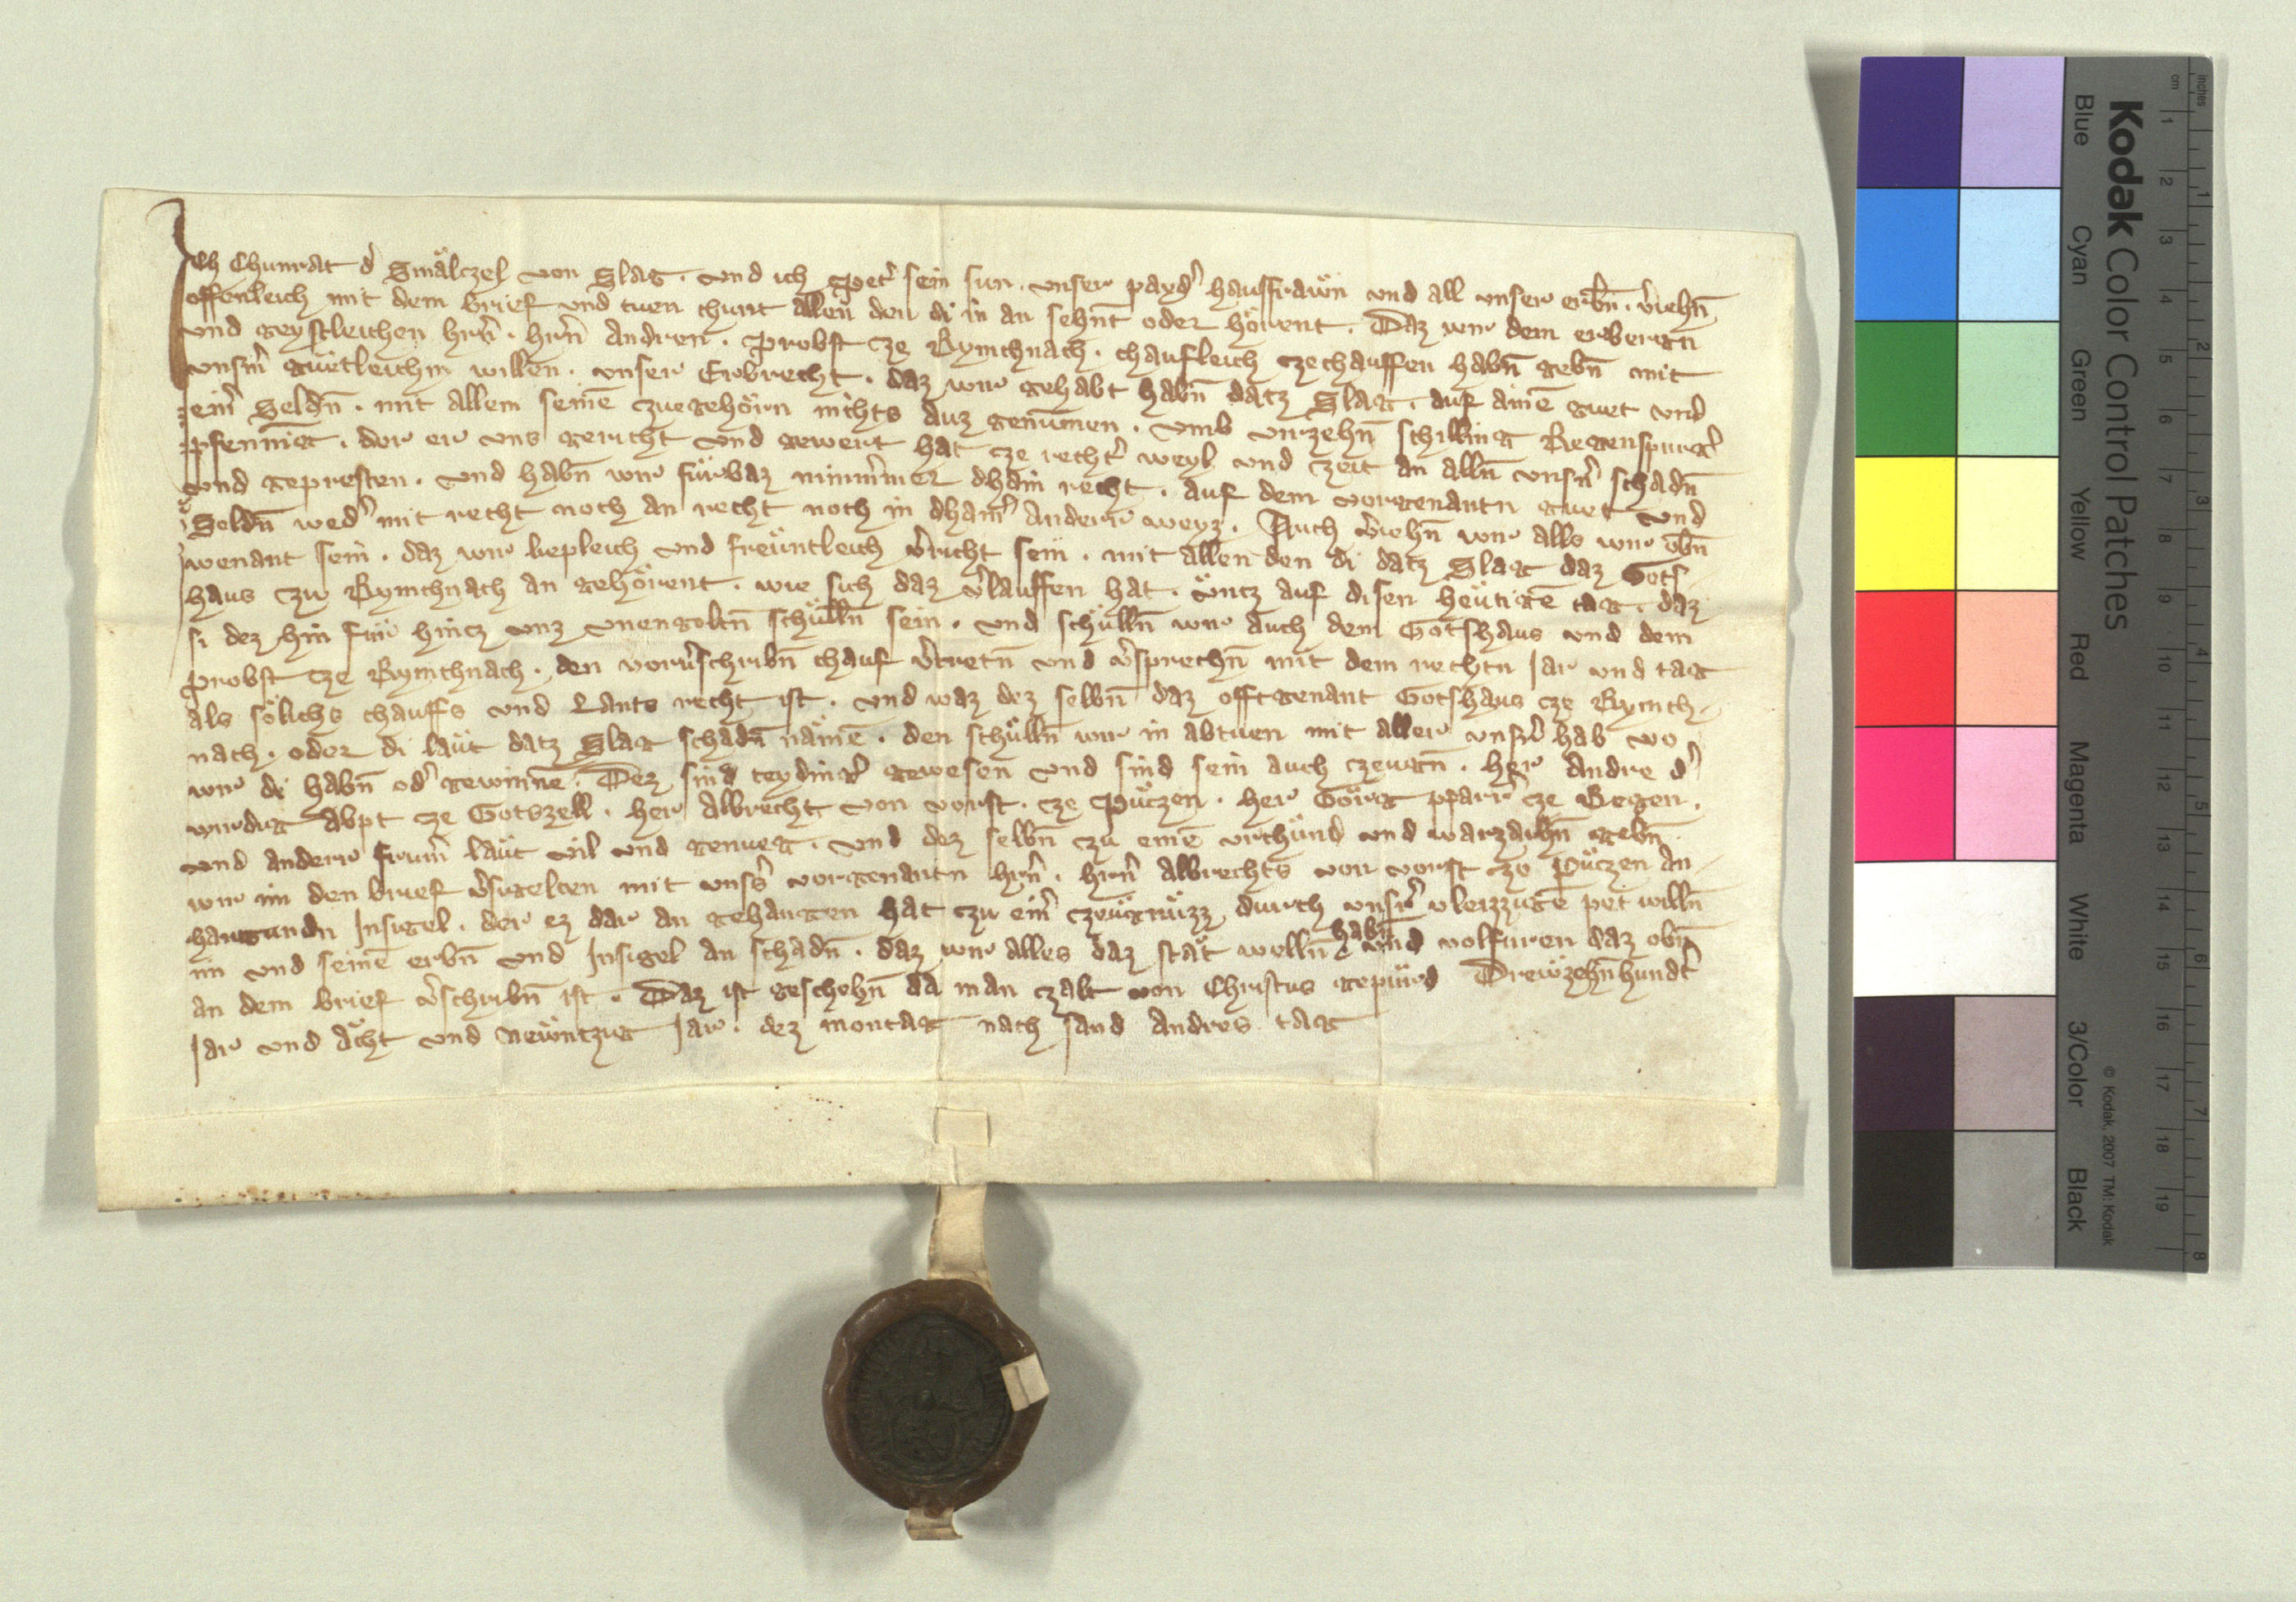 Ich Chunrat d̕ Smälczel von Slag . und ich Pet̕ sein sun . unser payd̕ hausfrawn und all unser erbn̄ . v̕iehn̄
offenleich mit dem brief und tuen chunt allen den di in an sehnt oder hörent . Daz wir dem erbergn
und geystleichen hrn̄ . hrn̄ Andren . Probst ze Rymchnach . chaufleich cze chauffen habn̄ gebn̄ mit
unsm̕ guetleichm willen . unser Erbrecht . daz wir gehabt habn̄ datz Slag . auf ainē guet und
eim̕ Seldn̄ . mit allem seinē czuegehörn nichts auz genumen . umb virzehn̄ schilling Regenspurg̕
pfennig . der er uns gericht und gewert hat cze recht̕ weyl und zeit an alln̄ unsn̕ schadn̄
und gepresten . und habn̄ wir fürbaz nimm̕mer dhain recht . auf dem vorgenantn guet und
Seldn̄ wed̕ mit recht noch an recht noch in dham̕ anderr weyz . Auch v̕iehn̄ wir alls wir obn̄
genant sein . daz wir liepleich und freüntleich v̕richt sein . mit allen den di datz Slag daz Gots
haus czu Rymchnach an gehörent . wie sich daz v̕lauffen hat . üntz auf disen heütigē tag . daz
si dez hin für hintz unz unengoltn̄ schülln̄ sein . und schülln̄ wir auch dem Gotshaus und dem
Probst cze Rymchnach . den vorv̕schribn̄ chauf v̕tretn̄ und v̕sprechn̄ mit dem rechtn Jar und tag
als sölichs chauffs und Lants recht ist . und waz dez selbn̄ daz offtgenant Gotshaus cze Rymch
nach . oder di läut datz Slag schadn̄ nämē . den schülln̄ wir in abtuen mit aller unsr̕ hab wo
wir di habn̄ od̕ gewinnē . Dez sind teyding̕ gewesen und sind sein auch czeugn̄ . her Andre d̕
wirdig Abpt cze Gotszell . her Albrecht von vorst . cze Pützen . her Görg pfarr̕ cze Regen .
und anderr frum̕ läut vil und genueg . und dez selbn̄ czu einē urchünd und warzaichn̄ gebn̄
wir im den brief v̕sigelten mit unss̕ vorgenantn hrn̄ . hrn̄ Albrechts von vorst cze Pützen an
hangundn Insigel . der ez dar an gehangen hat czu eim̕ czeügnüzz durch unsr̕ vleizzigē pet willn̄
im und seinē erbn̄ und Insigel an schadn̄ . daz wir alles daz stät welln̄ habn̄ und volfuren daz obn̄
an dem brief v̕schribn̄ ist . Daz ist geschehn̄ da man czalt von Christus gepürd Drewzehn̄hundt̕
Jar und ächt und Newntzig Jar . dez montag nach sand Andres tag
Kodak Color Control Patches
Blue Cyan Green Yellow Red Magenta White 3/Color Black
© Kodak, 2007 TM: Kodak
inches 1 2 3 4 5 6 7 8
cm 1 2 3 4 5 6 7 8 9 10 11 12 13 14 15 16 17 18 19